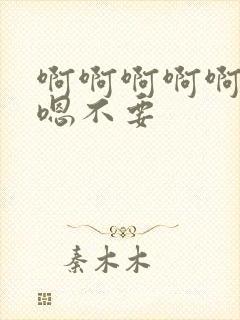 啊啊啊啊啊
嗯不要
秦木木